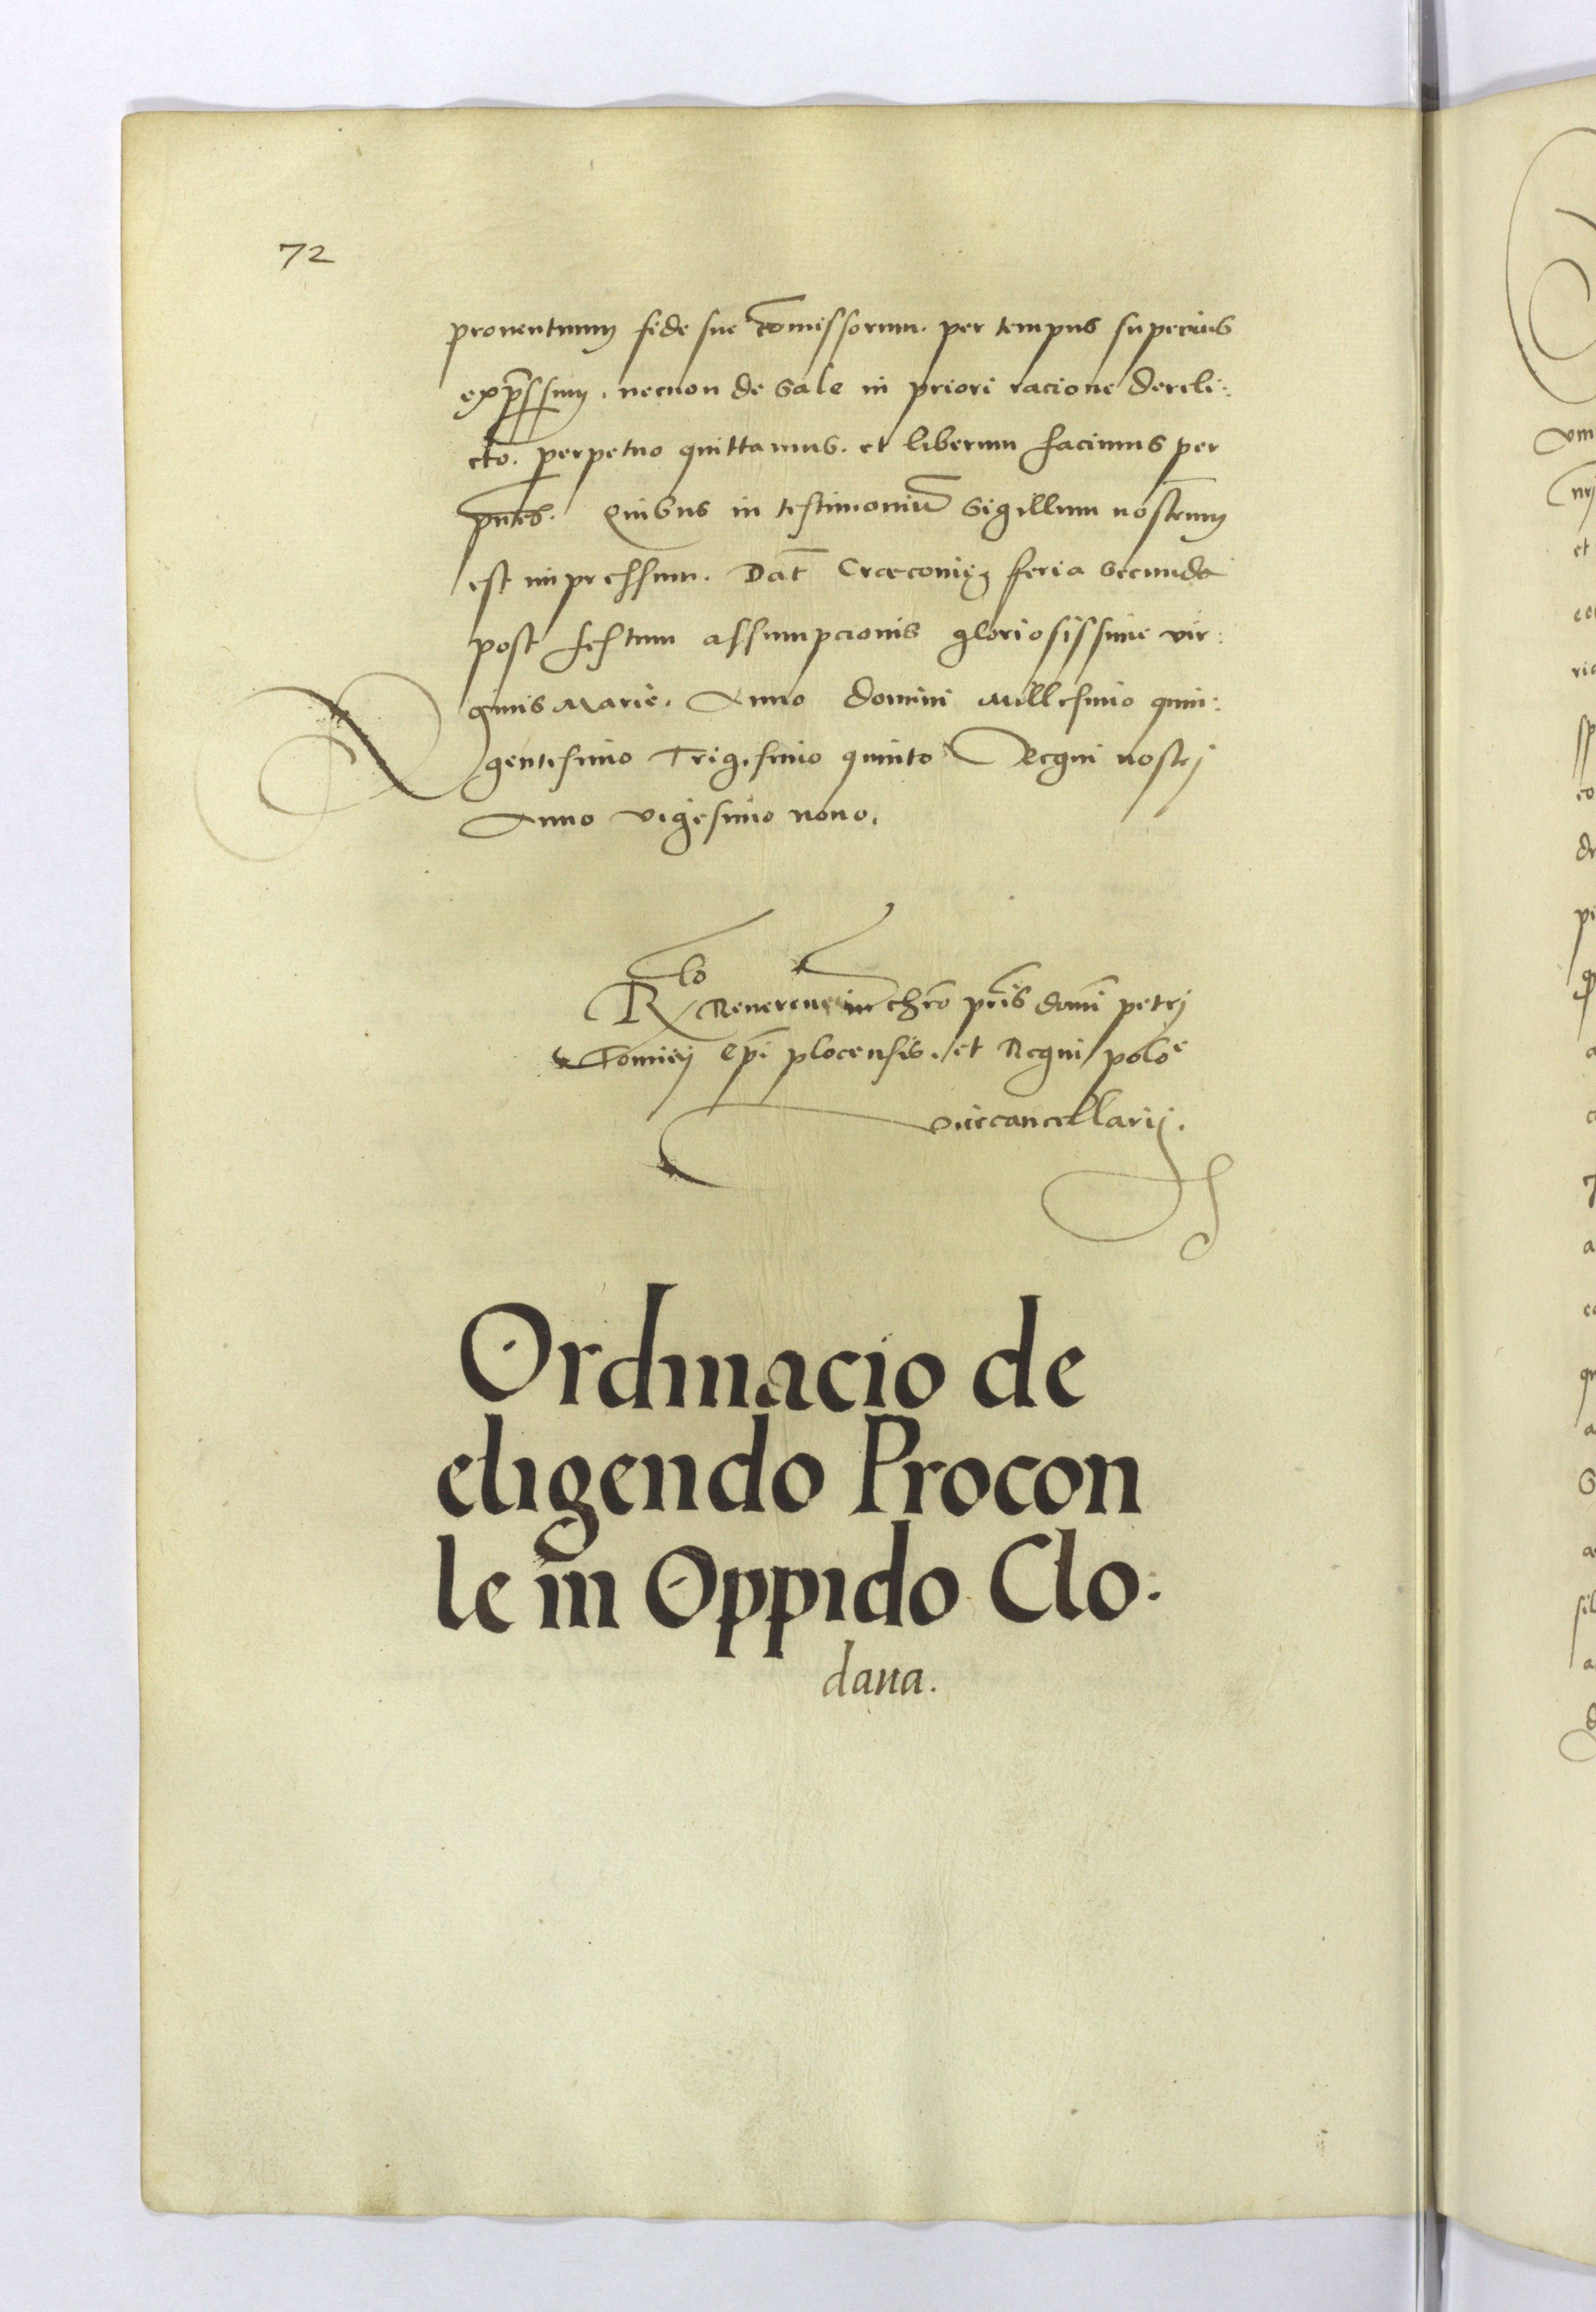 72
prouentuum fidei sue comissorum. per tempus superius
exp̄ssum. necnon de sale in priori racione dereli:
cto. perpetuo quittamus. et liberum facimus per
pn̄tes. Quibus in testimoniū sigillum nostrum
est impressum. Dat̄ Cracovię feria secunda
post festum assumpcionis gloriosissime vir:
ginis Marie. Anno domini Millesimo quin:
gentesimo Trigesimo quinto Regni nostrj
Anno vigesimo nono.
Rlo Reueren in chr̄o pr̄is domī petrj
Tomicij Ep̄i plocensis. et Regni poloe
vicecancellarij.
Ordinacio de
eligendo Procon
le in Oppido Clo:
daua.